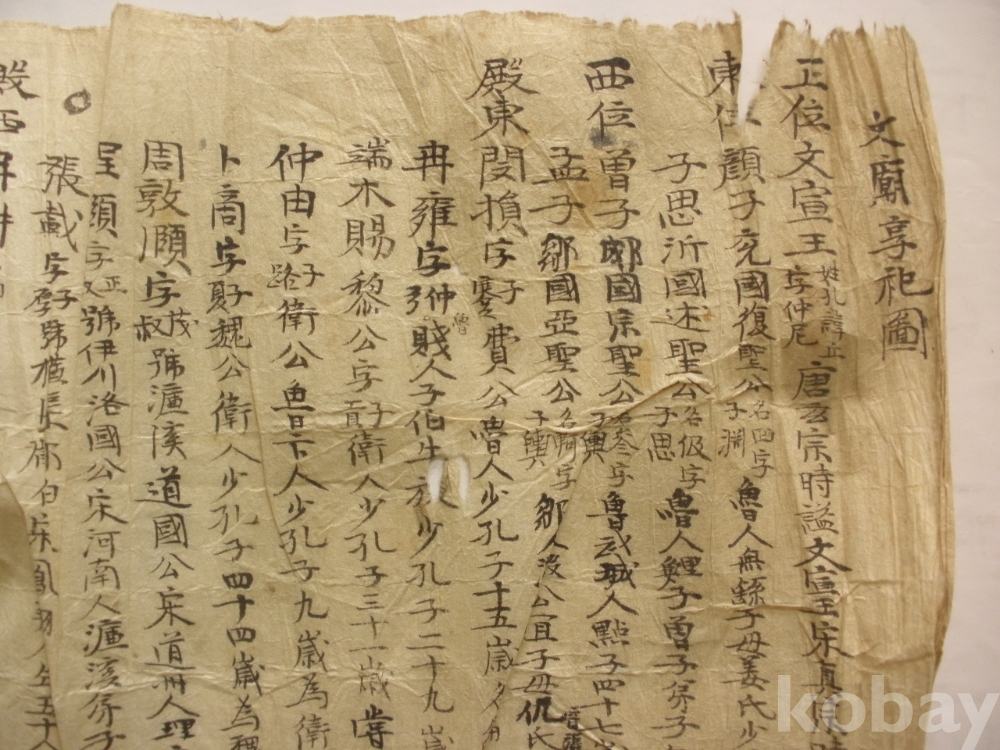 文廟享祀圖
正位文宣王姓孔諱丘字仲尼唐玄宗時謚文宣王宋真
東位顔子兗國復聖公名回字子淵魯人無繇子母姜氏少
子思沂國述聖公名伋字子思魯人鯉子曾子弟子
西位曾子郕國宗聖公名參字子輿魯武城人點子四十七
孟子鄒國亞聖公名軻字子輿鄒人 公宜子母仉氏
殿東閔損字子騫費公魯人少孔子十五歲
冉雍字仲弓魯賤人子伯牛族少孔子二十九歲
端木賜黎公字子貢衛人少孔子三十一歲嘗
仲由字子路衛公魯卞人少孔子九歲為衛
卜商字子夏魏公衛人少孔子四十四歲為魏
周敦頤字茂叔號濂溪道國公宋道州人理
呈頤字正叔號伊川洛國公宋河南人濂溪弟子
張載字子厚號橫渠郿伯宋鳳翔人 五十
殿西冉耕
kobay